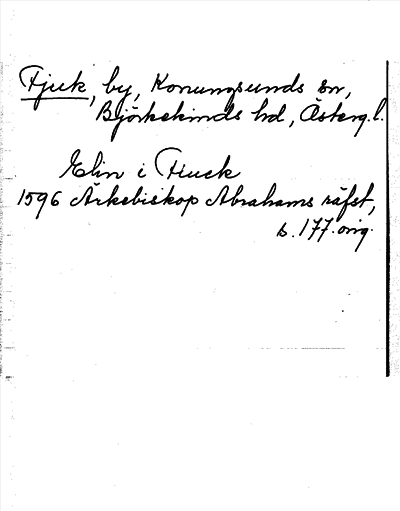 Fjuk, by, Konungsunds sn,
Björkekinds hd, Österg. l.
Elin i Fiuck
1596 Ärkebiskop Abrahams räfst,
s. 177. orig.